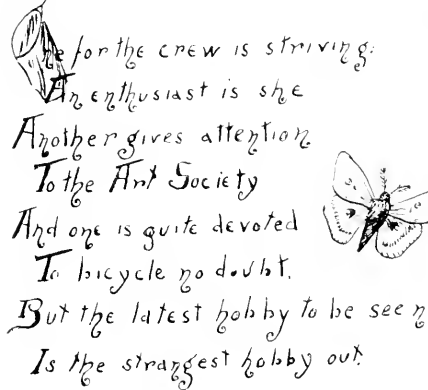 One for the crew is striving:
An enthusiast is she
Another gives attention
To the Art Society
And one is quite devoted
To bicycle no doubt.
But the latest hobby to be seen
Is the strangest hobby out.